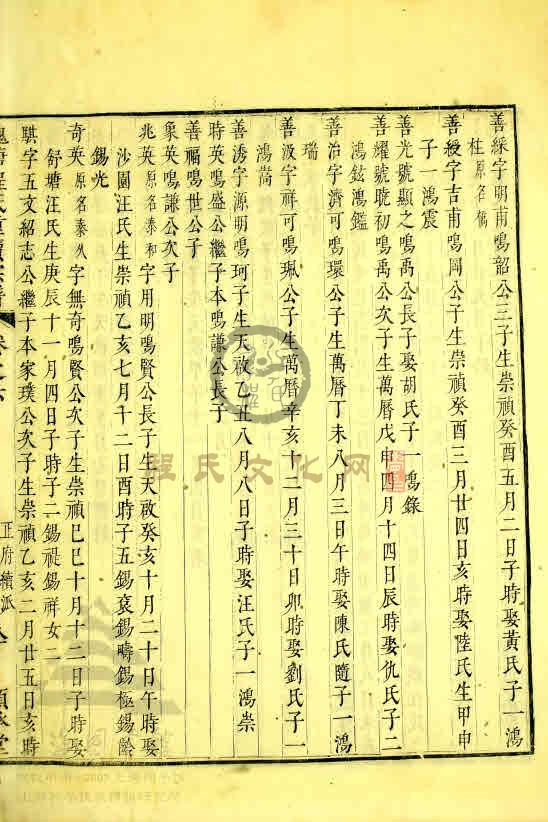 善綵字明甫鳴韶公三子生崇禎癸酉五月二日子時娶黃氏子一鴻
桂原名儁
善綬字吉甫鳴岡公子生崇禎癸酉三月廿四日亥時娶陸氏生甲申
子一鴻震
善光號顯之鳴禹公長子娶胡氏子一鴻錄
善耀號晥初鳴禹公次子生萬曆戊申四月十四日辰時娶仇氏子二
鴻鉉鴻鑑
善治字濟可鳴環公子生萬曆丁未八月三日午時娶陳氏隨子一鴻
瑞
善波字祥可鳴珮公子生萬曆辛亥十二月三十日卯時娶劉氏子一
鴻嵩
善濤字源明鳴珂子生天啟乙丑八月八日子時娶汪氏子一鴻崇
時英鳴盛公繼子本鳴謙公長子
善福鳴世公子
象英鳴謙公次子
兆英原名泰和字用明鳴賢公長子生天啟癸亥十月二十日午時娶
沙園汪氏生崇禎乙亥七月十二日酉時子五錫袞錫疇錫極錫齡
錫光
奇英原名泰久字無奇鳴賢公次子生崇禎己巳十月十二日子時娶
舒塘汪氏生庚辰十一月四日子時子二錫禔錫祥女二
騏字五文紹志公繼子本家璞公次子生崇禎乙亥二月廿五日亥時
氏
宗譜
卷之六
正府續派
順
堂
程氏文化网